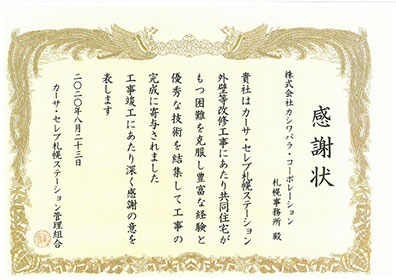 感謝状
株式会社カシワバラ・コーポレーション
札幌事務所 殿
貴社はカーサ・セレブ札幌ステーション
外壁等改修工事にあたり共同住宅が
もつ困難を克服し豊富な経験と
優秀な技術を結集して工事の
完成に寄与されました
工事竣工にあたり深く感謝の意を
表します
二〇二〇年八月二十三日
カーサ・セレブ札幌ステーション管理組合